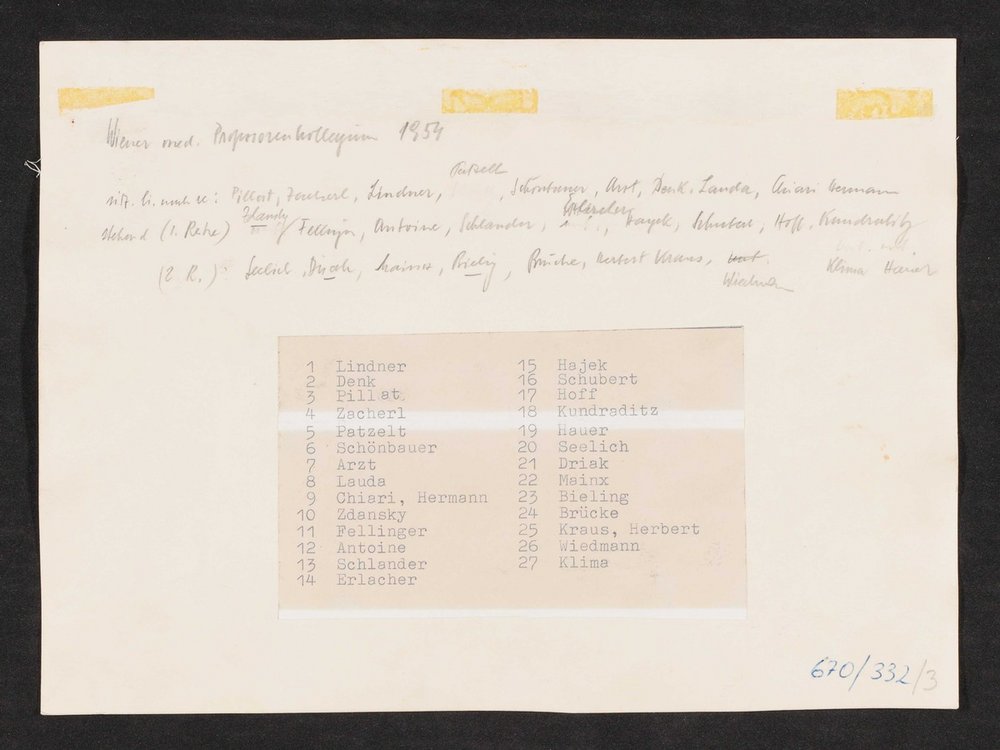 Wiener med. Professorenkollegium 1954
Patzelt
sitz. li. nach re: Pillat, Zacherl, Lindner, , Schönbauer, Arzt, Denk, Lauda, Chiari Hermann
Zdansky Erlacher
stehend (1. Reihe) Fellinger, Antoine, Schlander, Hayek, Schubert, Hoff, Kundratitz
(2. R.): Seelich, Mainx, Brücke, Herbert Kraus, Klima Hauer
Wiedmann
1 Lindner
2 Denk
3 Pillat
4 Zacherl
5 Patzelt
6 Schönbauer
7 Arzt
8 Lauda
9 Chiari, Hermann
10 Zdansky
11 Fellinger
12 Antoine
13 Schlander
14 Erlacher
15 Hajek
16 Schubert
17 Hoff
18 Kundraditz
19 Hauer
20 Seelich
21 Driak
22 Mainx
23 Bieling
24 Brücke
25 Kraus, Herbert
26 Wiedmann
27 Klima
670/332/3